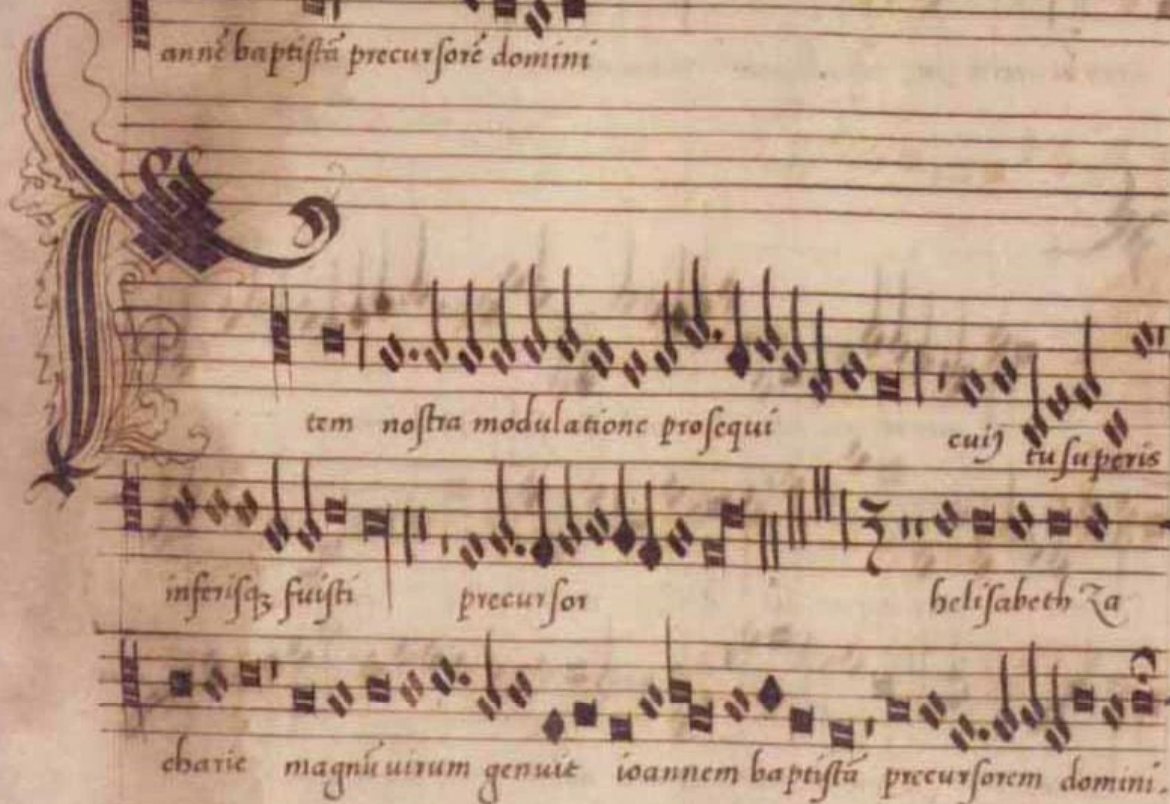 annē baptistā precursorē domini
tem nostra modulatione prosequi cuiꝰ tu superis
inferisqꝫ fuisti precursor helisabeth Za
charie magnū uirum genuit ioannem baptistā precursorem domini.